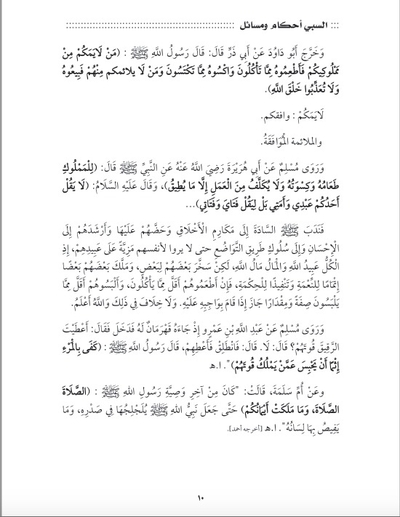 السبي أحكام ومسائل
وَخَرَّجَ أَبُو دَاوُدَ عَنْ أَبِي ذَرٍّ قَالَ: قَالَ رَسُولُ اللَّهِ ﷺ : (مَنْ لَايَمَكُمْ مِنْ
مَمْلُوكِيكُمْ فَأَطْعِمُوهُ مِمَّا تَأْكُلُونَ وَاكْسُوهُ مِمَّا تَكْتَسُونَ وَمَنْ لَا يلائمكم مِنْهُمْ فَبِيعُوهُ
وَلَا تُعَذِّبُوا خَلْقَ اللَّهِ).
لَايَمَكُمْ : وافقكم.
والملائمة الْمُوَافَقَةُ.
وَرَوَى مُسْلِمٌ عَنْ أَبِي هُرَيْرَةَ رَضِيَ اللَّهُ عَنْهُ عَنِ النَّبِيِّ ﷺ قَالَ: (لِلْمَمْلُوكِ
طَعَامُهُ وَكِسْوَتُهُ وَلَا يُكَلَّفُ مِنَ الْعَمَلِ إِلَّا مَا يُطِيقُ)، وَقَالَ عَلَيْهِ السَّلَامُ: (لَا يَقُلْ
أَحَدُكُمْ عَبْدِي وَأَمَتِي بَلْ لِيَقُلْ فَتَايَ وَفَتَاتِي)...
فَنَدَبَ ﷺ السَّادَةَ إِلَى مَكَارِمِ الْأَخْلَاقِ وَحَضَّهُمْ عَلَيْهَا وَأَرْشَدَهُمْ إِلَى
الْإِحْسَانِ وَإِلَى سُلُوكِ طَرِيقِ التَّوَاضُعِ حتى لا يروا لأنفسهم مَزِيَّةً عَلَى عَبِيدِهِمْ، إِذِ
الْكُلُّ عَبِيدُ اللَّهِ وَالْمَالُ مَالُ اللَّهِ، لَكِنْ سَخَّرَ بَعْضَهُمْ لِبَعْضٍ، وَمَلَّكَ بَعْضَهُمْ بَعْضًا
إِتْمَامًا لِلنِّعْمَةِ وَتَنْفِيذًا لِلْحِكْمَةِ، فَإِنْ أَطْعَمُوهُمْ أَقَلَّ مِمَّا يَأْكُلُونَ، وَأَلْبَسُوهُمْ أَقَلَّ مِمَّا
يَلْبَسُونَ صِفَةً وَمِقْدَارًا جَازَ إِذَا قَامَ بِوَاجِبِهِ عَلَيْهِ. وَلَا خِلَافَ فِي ذَلِكَ وَاللَّهُ أَعْلَمُ.
وَرَوَى مُسْلِمٌ عَنْ عَبْدِ اللَّهِ بْنِ عَمْرٍو إِذْ جَاءَهُ قَهْرَمَانٌ لَهُ فَدَخَلَ فَقَالَ: أَعْطَيْتَ
الرَّقِيقَ قُوتَهُمْ؟ قَالَ: لَا. قَالَ: فَانْطَلِقْ فَأَعْطِهِمْ، قَالَ رَسُولُ اللَّهِ ﷺ : (كَفَى بِالْمَرْءِ
إِثْمًا أَنْ يَحْبِسَ عَمَّنْ يَمْلُكُ قُوتَهُمْ)". ا.هـ
وعَنْ أُمِّ سَلَمَةَ، قَالَتْ: "كَانَ مِنْ آخِرِ وَصِيَّةِ رَسُولِ اللهِ ﷺ : (الصَّلَاةَ
الصَّلَاةَ، وَمَا مَلَكَتْ أَيْمَانُكُمْ) حَتَّى جَعَلَ نَبِيُّ اللهِ ﷺ يُلَجْلِجُهَا فِي صَدْرِهِ، وَمَا
يَفِيصُ بِهَا لِسَانُهُ". ا.هـ [أخرجه أحمد].
١٠